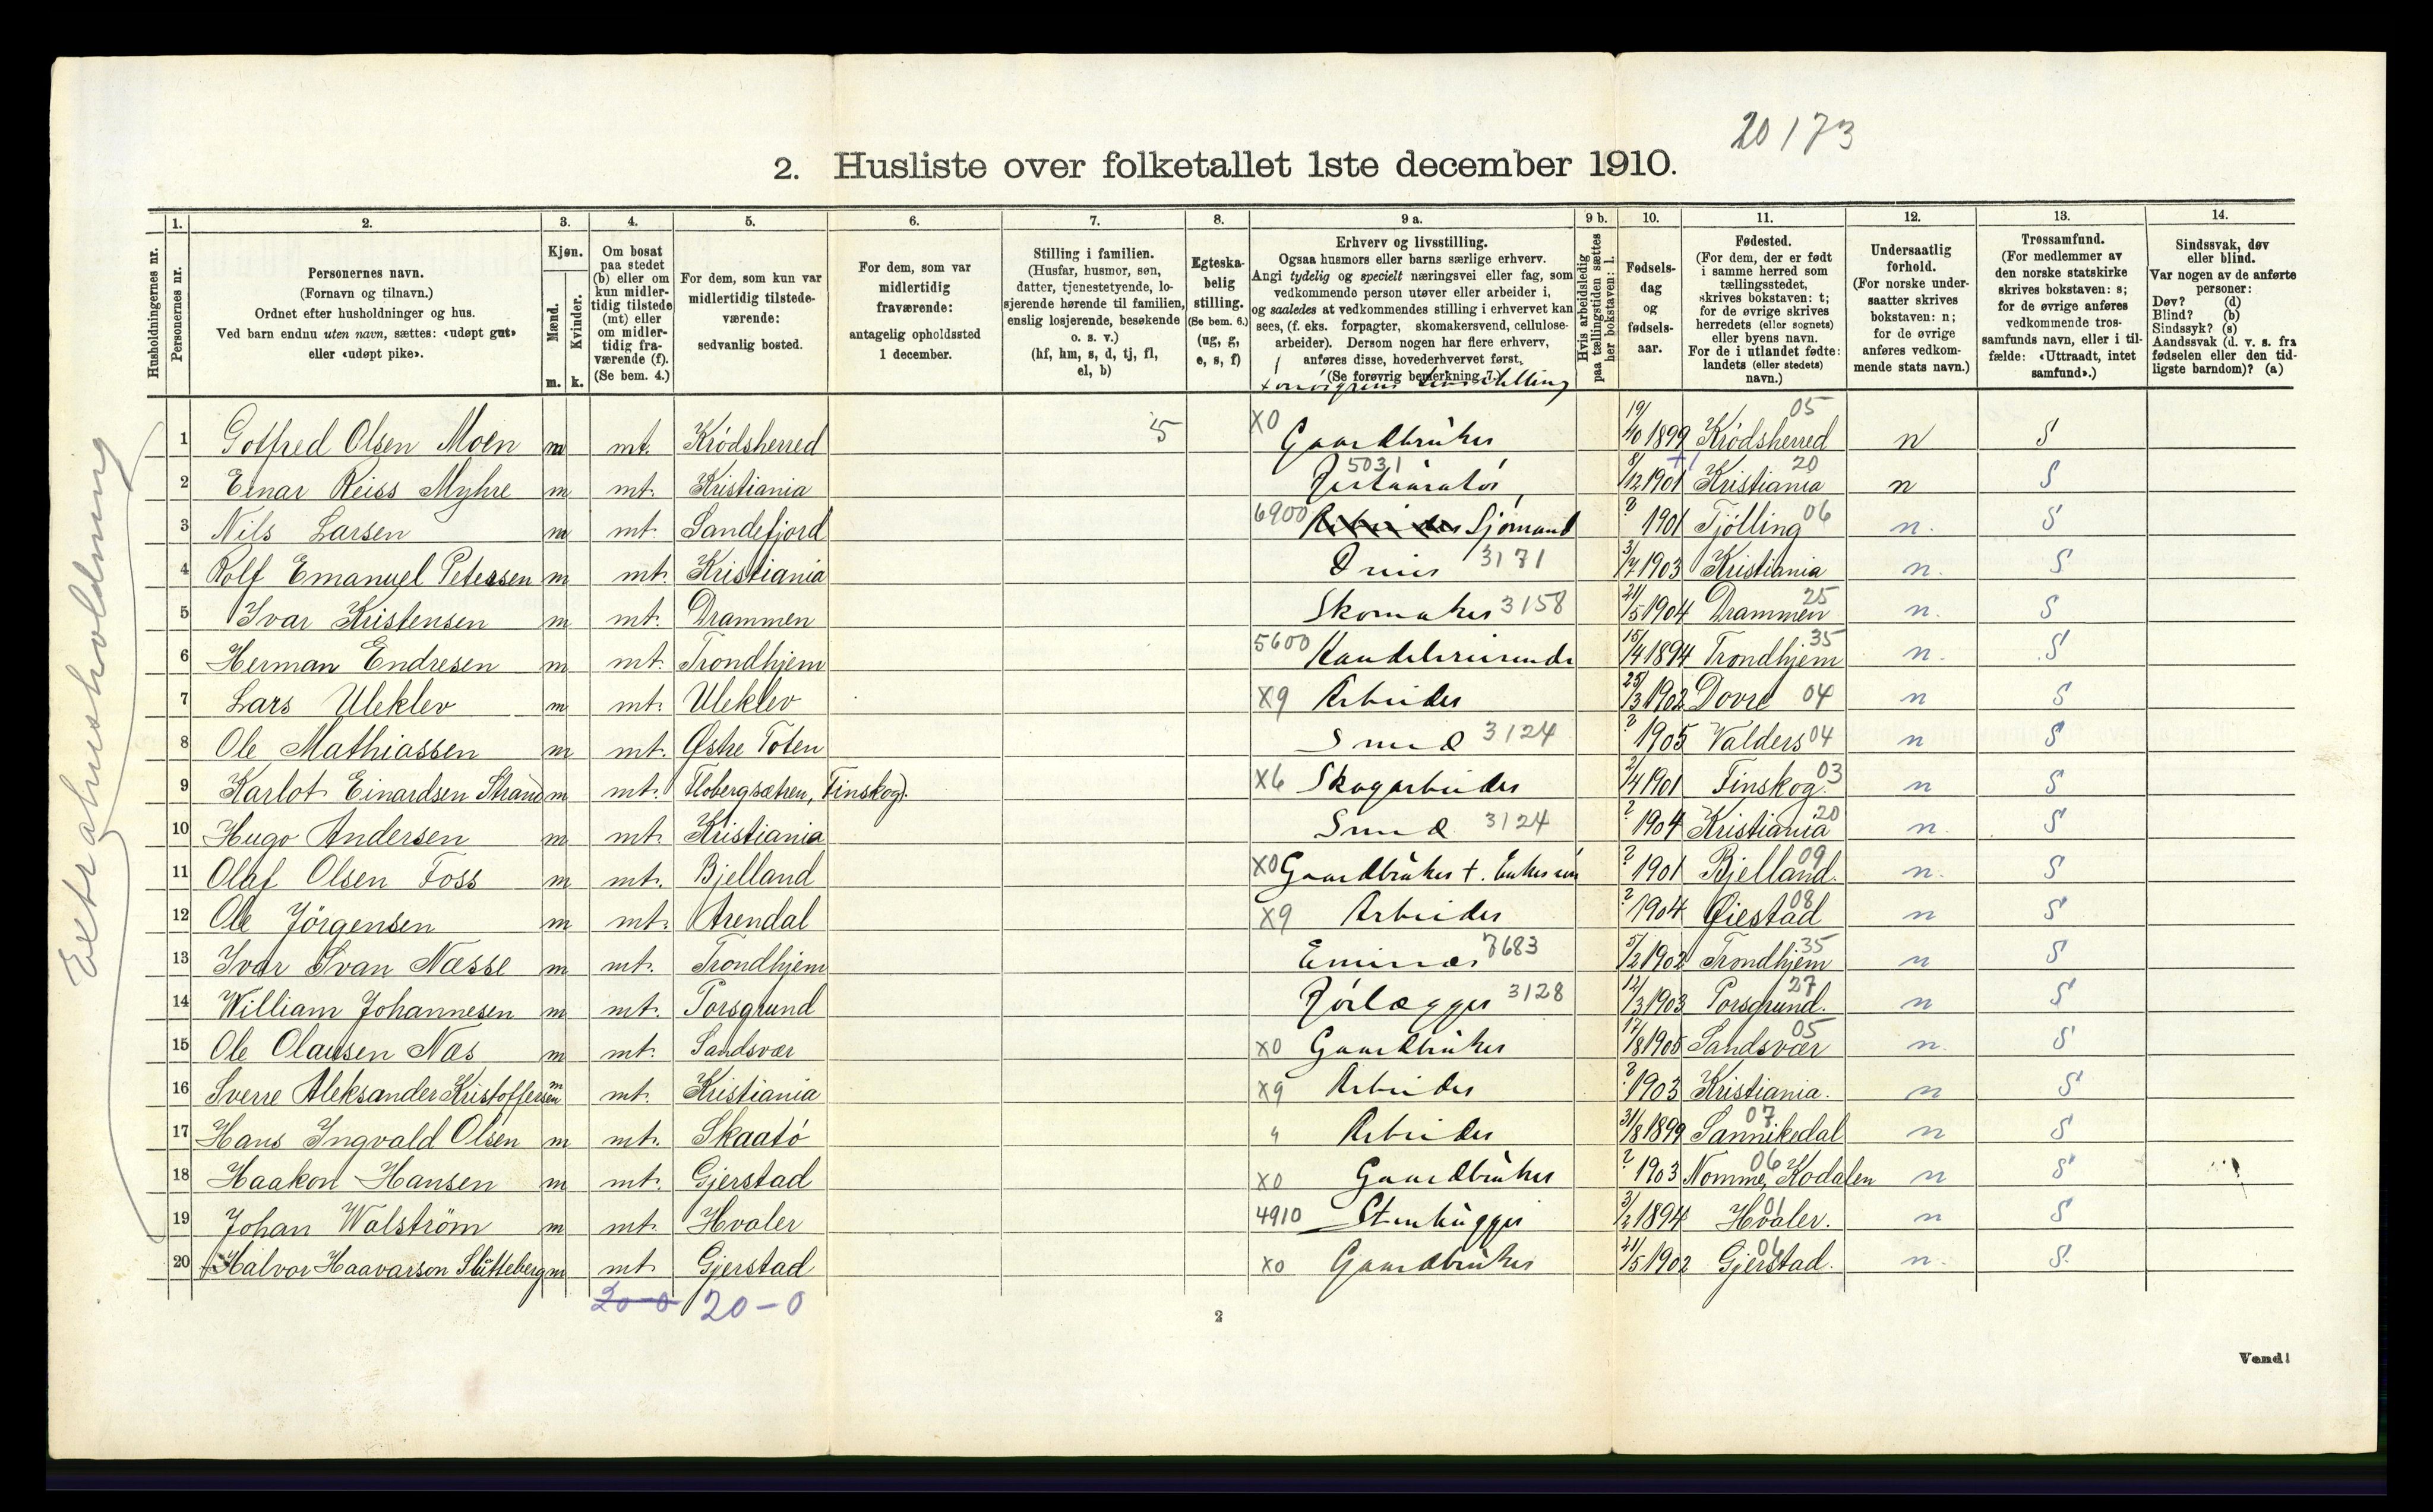 20173
2. Husliste over folketallet 1ste december 1910.
Husholdningernes nr.
1.
Personernes nr.
2.
Personernes navn.
(Fornavn og tilnavn.)
Ordnet efter husholdninger og hus.
Ved barn endnu uten navn, sættes: «udøpt gut»
eller «udøpt pike».
3.
Kjøn.
Mænd.
Kvinder.
m. k.
4.
Om bosat
paa stedet
(b) eller om
kun midler-
tidig tilstede
(mt) eller
om midler-
tidig fra-
værende (f).
(Se bem. 4.)
5.
For dem, som kun var
midlertidig tilstede-
værende:
sedvanlig bosted.
6.
For dem, som var
midlertidig
fraværende:
antagelig opholdssted
1 december.
7.
Stilling i familien.
(Husfar, husmor, søn,
datter, tjenestetyende, lo-
sjerende hørende til familien,
enslig losjerende, besøkende
o. s. v.)
(hf, hm, s, d, tj, fl,
el, b)
8.
Egteska-
belig
stilling.
(Se bem. 6.)
(ug, g,
e, s, f)
9 a.
Erhverv og livsstilling.
Ogsaa husmors eller barns særlige erhverv.
Angi tydelig og specielt næringsvei eller fag, som
vedkommende person utøver eller arbeider i,
og saaledes at vedkommendes stilling i erhvervet kan
sees, (f. eks. forpagter, skomakersvend, cellulose-
arbeider). Dersom nogen har flere erhverv,
anføres disse, hovederhvervet først.
(Se forøvrig bemerkning 7.)
9 b.
Hvis arbeidsledig
paa tællingstiden sættes
her bokstaven: l.
10.
Fødsels-
dag
og
fødsels-
aar.
11.
Fødested.
(For dem, der er født
i samme herred som
tællingsstedet,
skrives bokstaven: t;
for de øvrige skrives
herredets (eller sognets)
eller byens navn.
For de i utlandet fødte:
landets (eller stedets)
navn.)
12.
Undersaatlig
forhold.
(For norske under-
saatter skrives
bokstaven: n;
for de øvrige
anføres vedkom-
mende stats navn.)
13.
Trossamfund.
(For medlemmer av
den norske statskirke
skrives bokstaven: s;
for de øvrige anføres
vedkommende tros-
samfunds navn, eller i til-
fælde: «Uttraadt, intet
samfund».)
14.
Sindssvak, døv
eller blind.
Var nogen av de anførte
personer:
Døv? (d)
Blind? (b)
Sindssyk? (s)
Aandssvak (d. v. s. fra
fødselen eller den tid-
ligste barndom)? (a)
Extrahusholdning
1 Gotfred Olsen Moen m mt. Krödsherred 5 X0 Gaardbruker 19/10 1899 Krödsherred 05 n S
2 Einar Reiss Myhre m mt. Kristiania 5031 8/12 1901 Kristiania 20 n S
3 Nils Larsen m mt. Sandefjord 6900 Arbeider Sjömand ? 1901 Tjölling 06 n. S
4 Rolf Emanuel Petersen m mt. Kristiania 3171 3/7 1903 Kristiania n. S
5 Ivar Kristensen m mt. Drammen Skomaker 3158 21/5 1904 Drammen 25 n. S
6 Herman Endresen m mt. Trondhjem 5600 Handelsreisende 15/4 1894 Trondhjem 35 n. S
7 Lars Uleklev m mt. Uleklev X9 Arbeider 25/3 1902 Dovre 04 n S
8 Ole Mathiassen m mt. Østre Toten Smed 3124 ? 1905 Valders 04 n S
9 Karlot Einardsen Strand m mt. Flobergsætren, Finskog). X6 Skogarbeider 2/4 1901 Finskog. 03 n S
10 Hugo Andersen m mt. Kristiania Smed 3124 ? 1904 Kristiania 20 n. S
11 Olaf Olsen Foss m mt. Bjelland X0 Gaardbruker + ? 1901 Bjelland. 09 n. S
12 Ole Jörgensen m mt. Arendal X9 Arbeider ? 1904 Øiestad 08 n S
13 Ivar Svan Næsse m mt. Trondhjem 7683 5/2 1902 Trondhjem 35 n S
14 William Johannesen m mt. Porsgrund Rörlægger 3128 12/3 1903 Porsgrund. 27 n S
15 Ole Olausen Næs m mt. Sandsvær X0 Gaardbruker 17/8 1905 Sandsvær 05 n. S
16 Sverre Aleksander Kristoffersen m mt. Kristiania X9 Arbeider ? 1903 Kristiania. n S
17 Hans Ingvald Olsen m mt. Skaatö " Arbeider 31/8 1899 Sannikedal 07 n S
18 Haakon Hansen m mt. Gjerstad X0 Gaardbruker ? 1903 Nomme, Kodalen 06 n S
19 Johan Walström m mt. Hvaler 4910 Stenhugger 3/2 1894 Hvaler. 01 n S
20 Halvor Haavarson Slåtteberg m mt Gjerstad X0 Gaardbruker 21/5 1902 Gjerstad. n. S.
20-0 20-0
2
Vend!